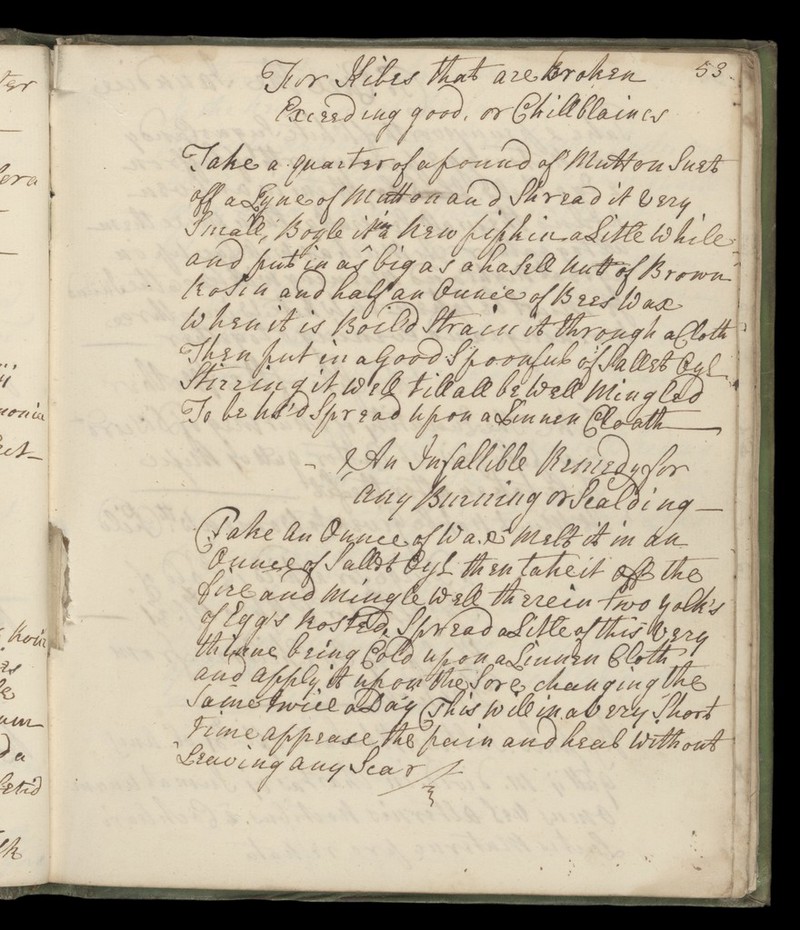 For Kibes that are broken 53
Exceeding good, or Chillblaines
Take a quarter of a pound of Mutton Suet
off a Lyne of Mutton and Shread it Very
Small, Boyle it in a New pipkin a Little While
and put in as big as a hasell Nutt of Brown
Rosin and half an Ounce of Bees Wax
When it is Boil'd Strain it through a Cloth
Then put in a Good Spoonfull of Sallet Oyl
Stirring it Well till all be Well Mingled
To be Us'd Spread upon a Linnen Cloath
An Infallible Remedy for
any Burning or Scalding
Take An Ounce of Wax Melt it in an
Ounce of Sallet Oyl then take it off the
fire and Mingle Well therein two yolk's
of Egg's Rosted, Spread a Little of this Very
thinne being Cold upon a Linnen Cloth
and apply it upon the Sore, changing the
Same twice a Day This Will in a Very Short
time appease the pain and heal Without
Leaving any Scar